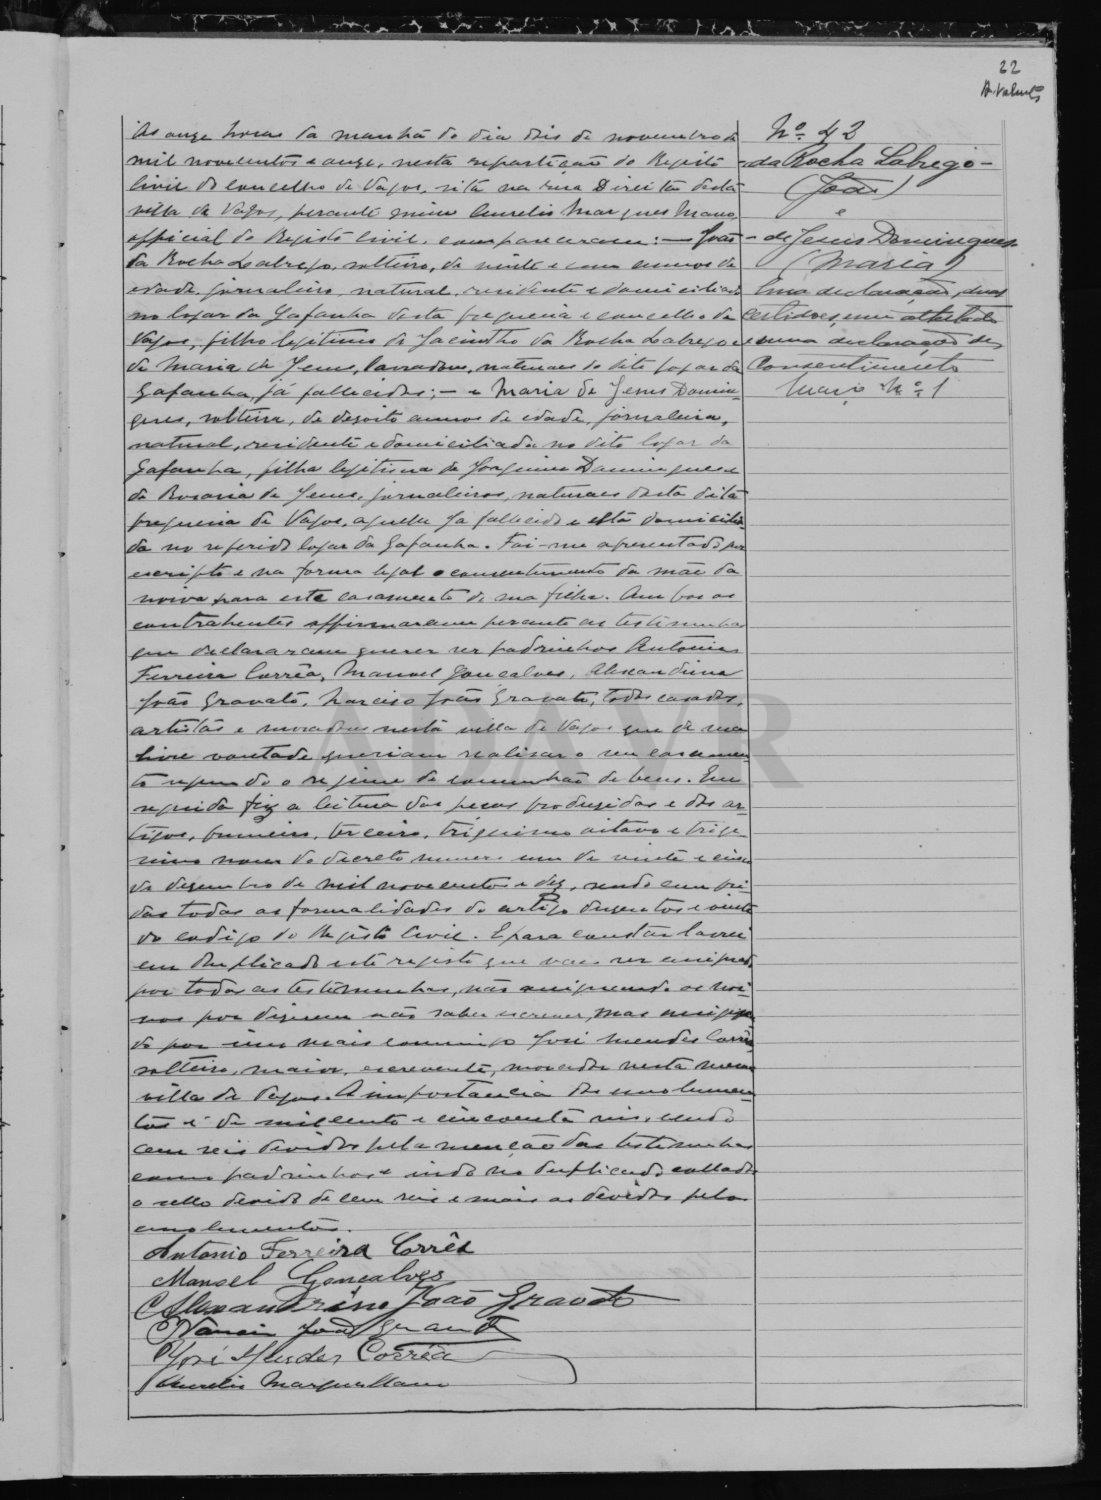 22
A. Valente
Nº 42
- da Rocha Labrego -
(João)
e
- de Jesus Domingues
(Maria)
Uma declaração, duas
certidões, um attestado
e uma declaração de
Consentimento
Março Nº 1
Ás onze horas da manhã do dia dois de novembro de
mil novecentos e onze, nesta repartição do Registo
Civil do concelho de Vagos, sita na rua Direita desta
villa de Vagos, perante mim Aurelio Marques Mano,
official do Registo Civil, compareceram: — João
da Rocha Labrego, solteiro, de vinte e um annos de
edade, jornaleiro, natural, residente e domiciliado
no logar da Gafanha desta freguesia e concelho de
Vagos, filho legitimo de Jacintho da Rocha Labrego e
de Maria de Jesus, lavradores, naturaes do dito logar da
Gafanha, já fallecidos; — e Maria de Jesus Domin-
gues, solteira, de desoito annos de edade, jornaleira,
natural, residente e domiciliada no dito logar da
Gafanha, filha legitima de Joaquim Domingues e
de Rosaria de Jesus, jornaleiros, naturaes desta dita
freguesia de Vagos, aquelle já fallecido e esta domicilia-
da no referido logar da Gafanha. Foi-me apresentado por
escripto e na forma legal o consentimento da mãe da
noiva para este casamento de sua filha. Ambos os
contrahentes affirmaram perante as testemunhas
que declararam querer ser padrinhos Antonio
Ferreira Corrêa, Manuel Gonçalves, Alexandrino
João Gravato, Narciso João Gravato, todos casados,
artistas e moradores nesta villa de Vagos que de sua
livre vontade queriam realisar o seu casamen-
to segundo o regime de comunhão de bens. Em
seguida fiz a leitura das peças produzidas e dos ar-
tigos, primeiro, terceiro, trigesimo oitavo e trige-
simo nono do decreto numero um de vinte e cinco
de dezembro de mil novecentos e dez, sendo cumpri-
das todas as formalidades do artigo duzentos e vinte
do codigo do Registo Civil. E para constar lavrei
em duplicado este registo que vae ser assignado
por todas as testemunhas, não assignando os noi-
vos por dizerem não saber escrever, mas assignan-
do por um mais commigo José Mendes Corrêa,
solteiro, maior, escrevente, morador nesta mesma
villa de Vagos. A importancia dos emolumen-
tos é de mil cento e cincoenta reis, sendo
cem reis devidos pela menção das testemunhas
como padrinhos e indo no duplicado collado
o sello devido de cem reis e mais os devidos pelos
emolumentos.
Antonio Ferreira Corrêa
Manoel Gonçalves
Alexandrino João Gravato
Narciso João Gravato
José Mendes Corrêa
Aurelio Marques Mano